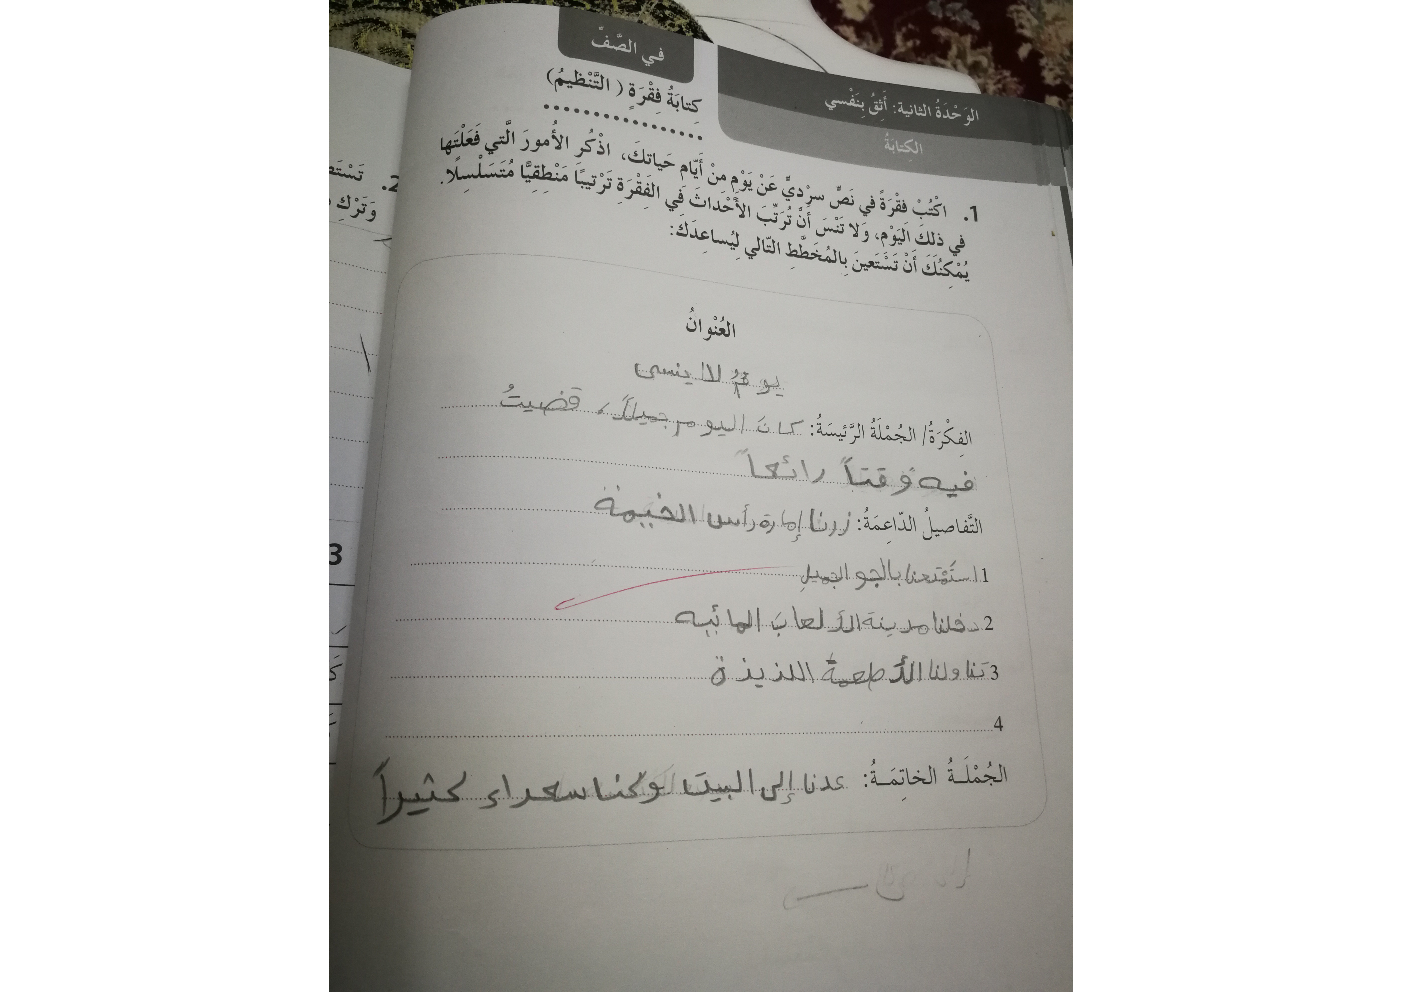 في الصَّفّ
الوَحْدَةُ الثانية: أَثِقُ بِنَفْسي
كِتابَةُ فِقْرَةٍ ( التَّنْظيمُ)
الكِتابَةُ
1. اكْتُبْ فِقْرَةً في نَصٍّ سرْديٍّ عَنْ يَوْمٍ مِنْ أَيّامِ حَياتكَ، اذْكُرِ الأُمورَ الَّتي فَعَلْتَها
في ذلكَ اليَوْمِ، وَلا تَنْسَ أَنْ تُرَتِّبَ الأَحْداثَ في الفَقْرَةِ تَرْتيبًا مَنْطِقِيًّا مُتَسَلْسِلًا.
يُمْكِنُكَ أَنْ تَسْتَعينَ بِالمُخَطَّطِ التّالي لِيُساعِدَكَ:
العُنْوانُ
يومٌ لا ينسى
الفِكْرَةُ/ الجُمْلَةُ الرَّئيسَةُ: كانَ اليوم جميلاً، قضيتُ
فيه وقتاً رائعاً
التَّفاصيلُ الدّاعِمَةُ: زرنا إمارة رأس الخيمة
1 استَمْتعنا بالجو الجميلِ
2 دخلنا مدينة الألعاب المائيه
3 تناولنا الأطعمة اللذيذة
4
الجُمْلَةُ الخاتِمَةُ: عدنا إلى البيت وكنا سعداء كثيراً
2. تَسْتَ
وَتَرْكِ
3